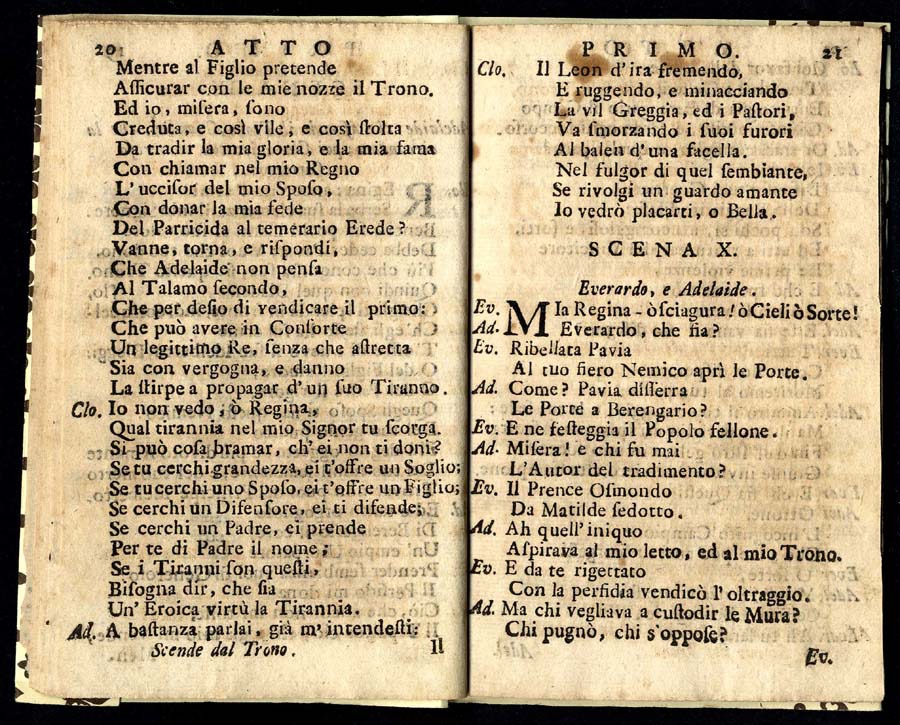 20 ATTO
Mentre al Figlio pretende
Aſſicurar con le mie nozze il Trono.
Ed io, miſera, ſono
Creduta, e così vile, e così ſtolta
Da tradir la mia gloria, e la mia fama
Con chiamar nel mio Regno
L'ucciſor del mio Spoſo,
Con donar la mia fede
Del Parricida al temerario Erede?
Vanne, torna, e riſpondi,
Che Adelaide non penſa
Al Talamo ſecondo,
Che per deſio di vendicare il primo:
Che può avere in Conſorte
Un legittimo Re, ſenza che aſtretta
Sia con vergogna, e danno
La ſtirpe a propagar d'un ſuo Tiranno.
Clo. Io non vedo, ò Regina,
Qual tirannia nel mio Signor tu ſcorga.
Si può coſa bramar, ch'ei non ti doni?
Se tu cerchi grandezza, ei t'offre un Soglio;
Se tu cerchi uno Spoſo, ei t'offre un Figlio;
Se cerchi un Difenſore, ei ti difende;
Se cerchi un Padre, ei prende
Per te di Padre il nome;
Se i Tiranni ſon queſti,
Biſogna dir, che ſia
Un'Eroica virtù la Tirannia.
Ad. A baſtanza parlai, già m'intendeſti:
Scende dal Trono. Il
PRIMO. 21
Clo. Il Leon d'ira fremendo,
E ruggendo, e minacciando
La vil Greggia, ed i Paſtori,
Va ſmorzando i ſuoi furori
Al balen d'una facella.
Nel fulgor di quel ſembiante,
Se rivolgi un guardo amante
Io vedrò placarti, o Bella.
SCENA X.
Everardo, e Adelaide.
Ev. MIa Regina - ò ſciagura! ò Cieli ò Sorte!
Ad. Everardo, che ſia?
Ev. Ribellata Pavia
Al tuo fiero Nemico aprì le Porte.
Ad. Come? Pavia diſſerra
Le Porte a Berengario?
Ev. E ne feſteggia il Popolo fellone.
Ad. Miſera! e chi fu mai
L'Autor del tradimento?
Ev. Il Prence Oſmondo
Da Matilde ſedotto.
Ad. Ah quell'iniquo
Aſpirava al mio letto, ed al mio Trono.
Ev. E da te rigettato
Con la perfidia vendicò l'oltraggio.
Ad. Ma chi vegliava a cuſtodir le Mura?
Chi pugnò, chi s'oppoſe?
Ev.